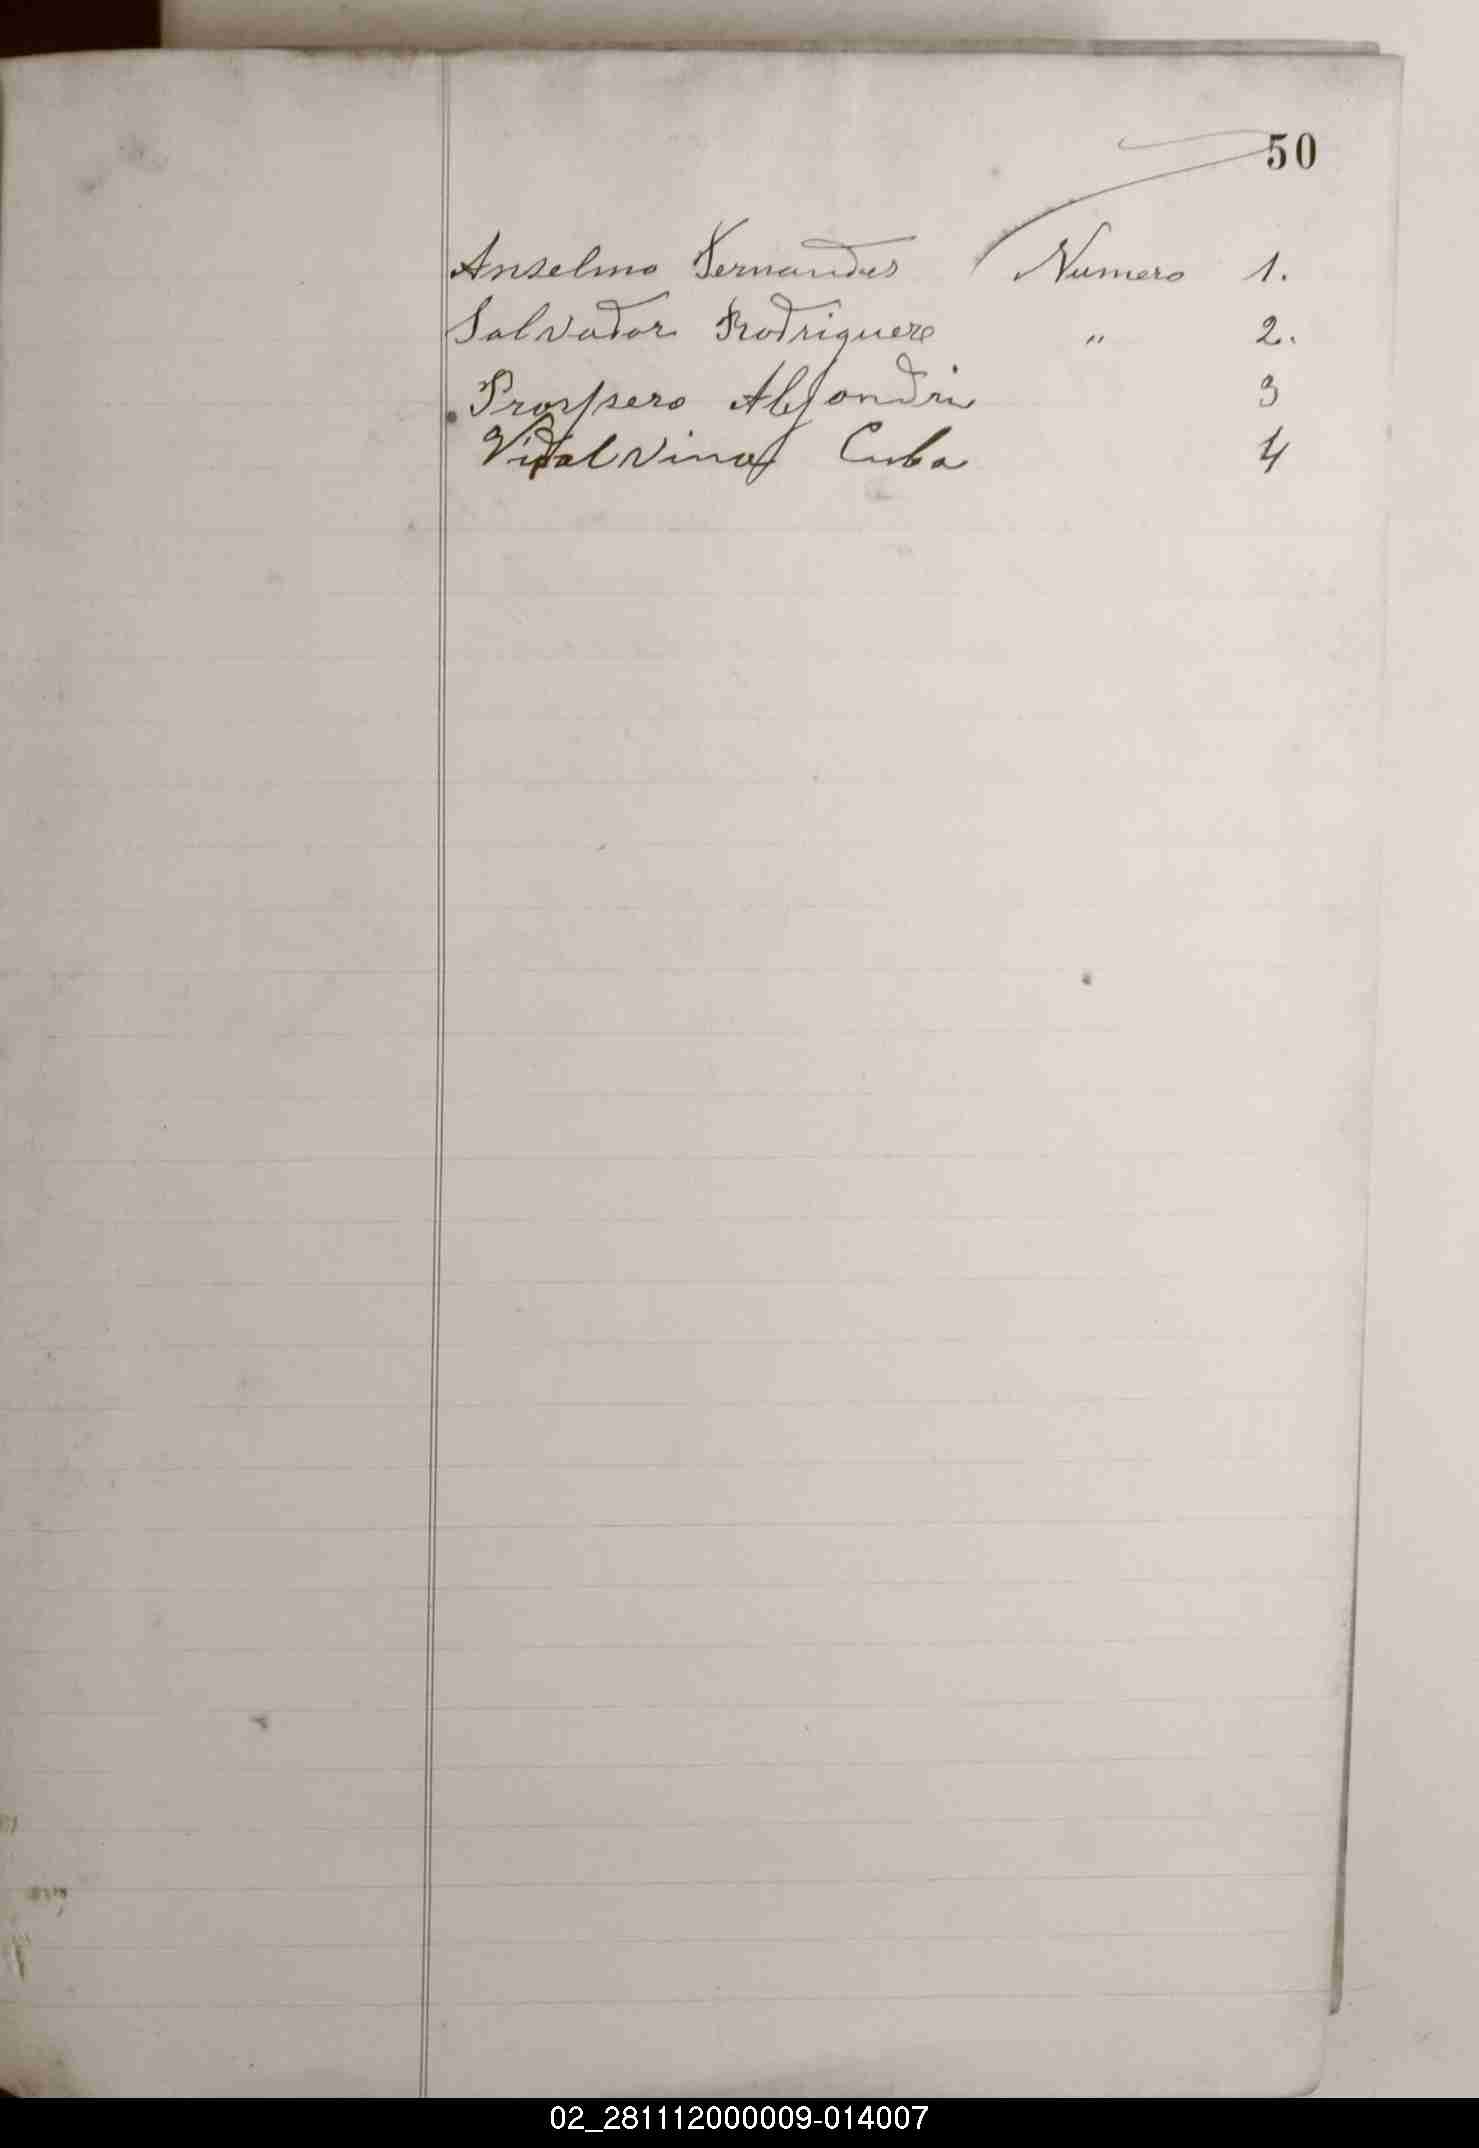 50
Anselmo Fernandes Numero 1.
Salvador Rodriguere " 2.
Prospero Alejondri 3
Vidalvina Cuba 4
02_281112000009-014007